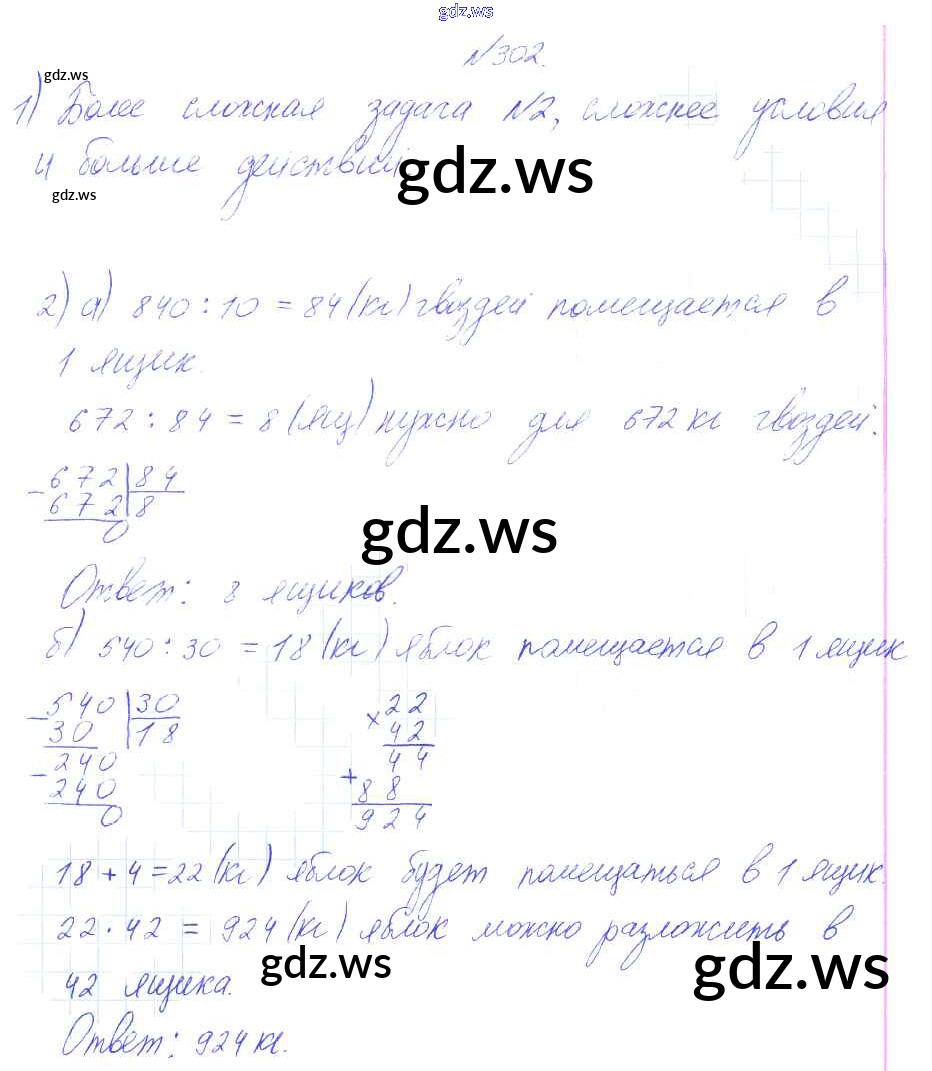 gdz.ws
№302.
gdz.ws
1) Более сложная задача №2, сложнее условия
и больше действий
gdz.ws
gdz.ws
2) а) 840 : 10 = 84 (кг) гвоздей помещается в
1 ящик.
672 : 84 = 8 (ящ) нужно для 672 кг гвоздей.
- 672 | 84
672 | 8
0
gdz.ws
Ответ: 8 ящиков.
б) 540 : 30 = 18 (кг) яблок помещается в 1 ящик
- 540 | 30
30 | 18
- 240
240
0
× 22
42
44
+ 88
924
18 + 4 = 22 (кг) яблок будет помещаться в 1 ящик.
22 · 42 = 924 (кг) яблок можно разложить в
gdz.ws
gdz.ws
42 ящика.
Ответ: 924 кг.